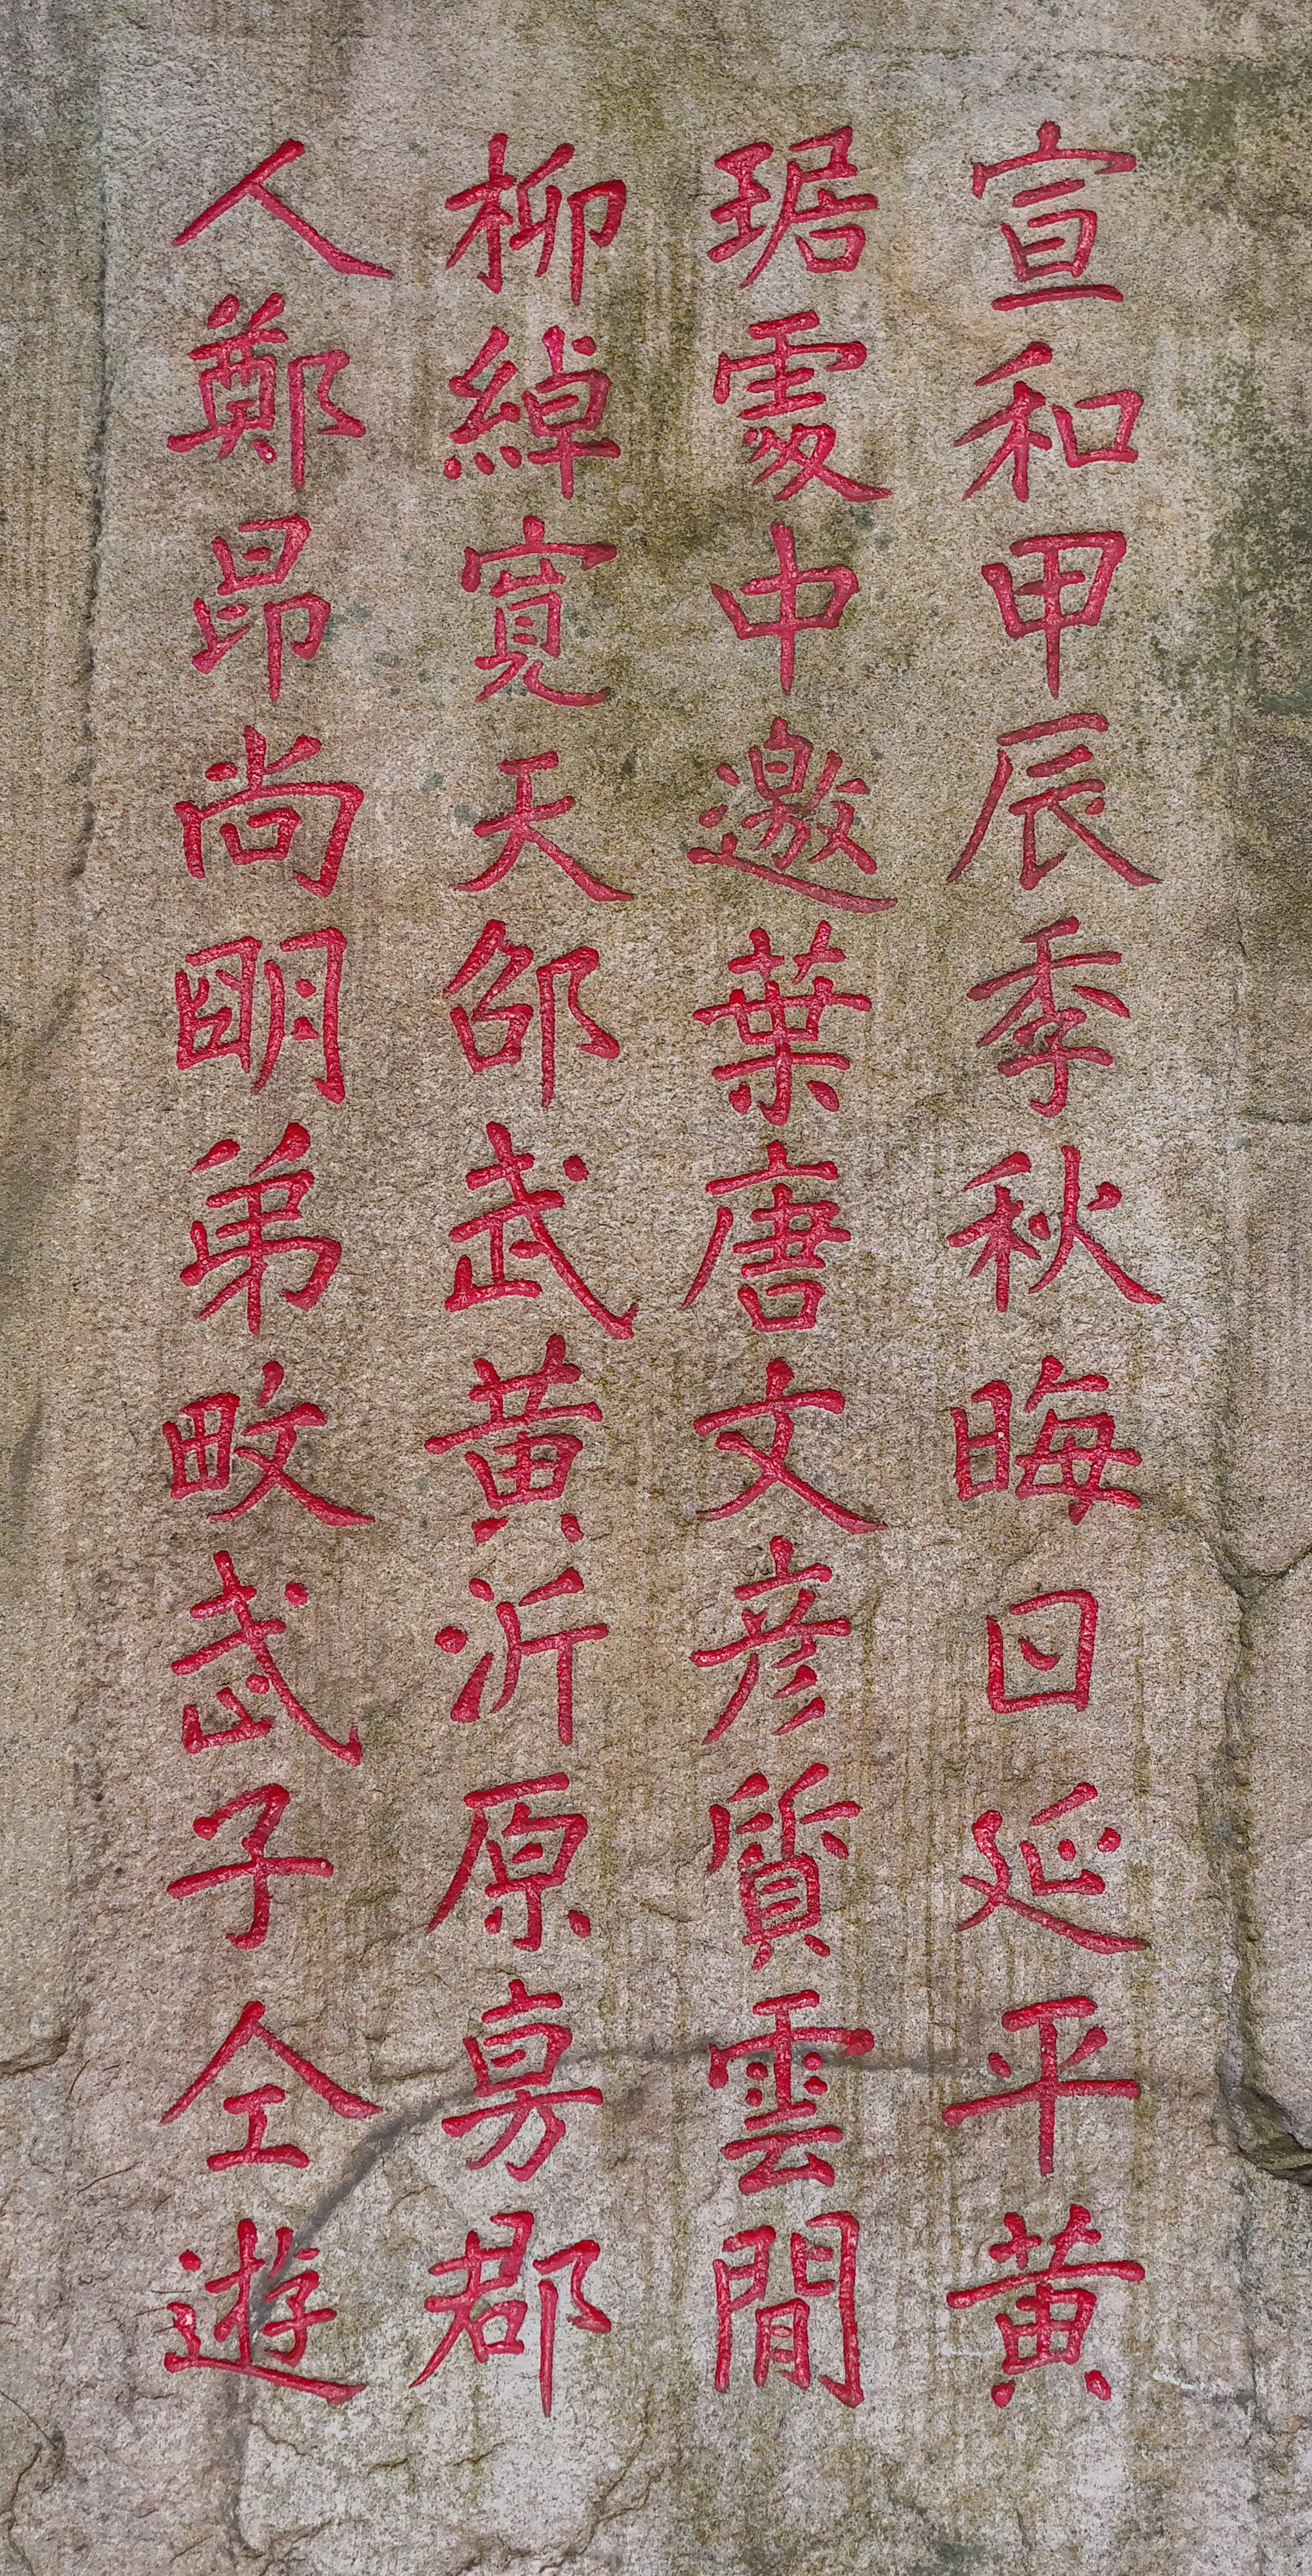 宣和甲辰季秋晦日延平黄
琚處中邀葉唐文彦質雲間
柳綽寬天邵武黄沂原郡
人鄭昂尚明弟畋武子仝遊